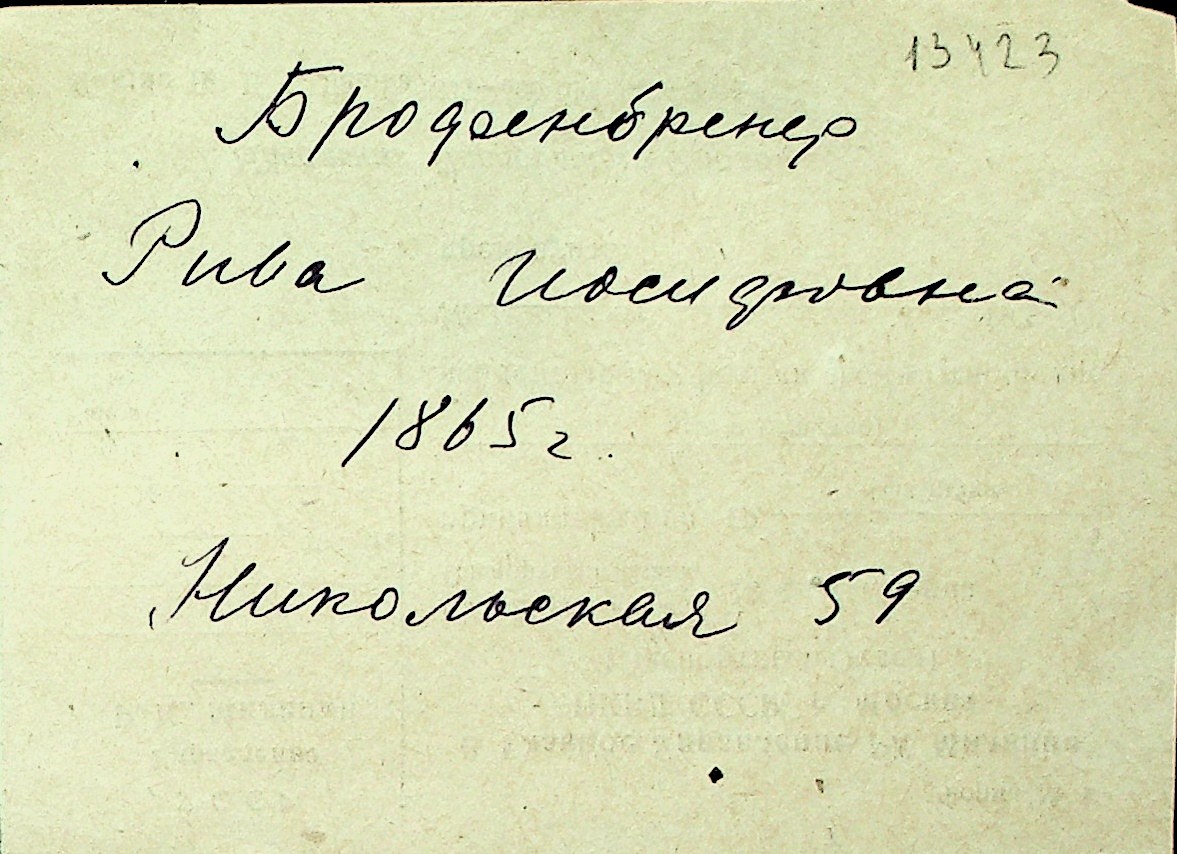 13423
Бродфенбренер
Рива Иосифовна
1865 г.
Никольская 59